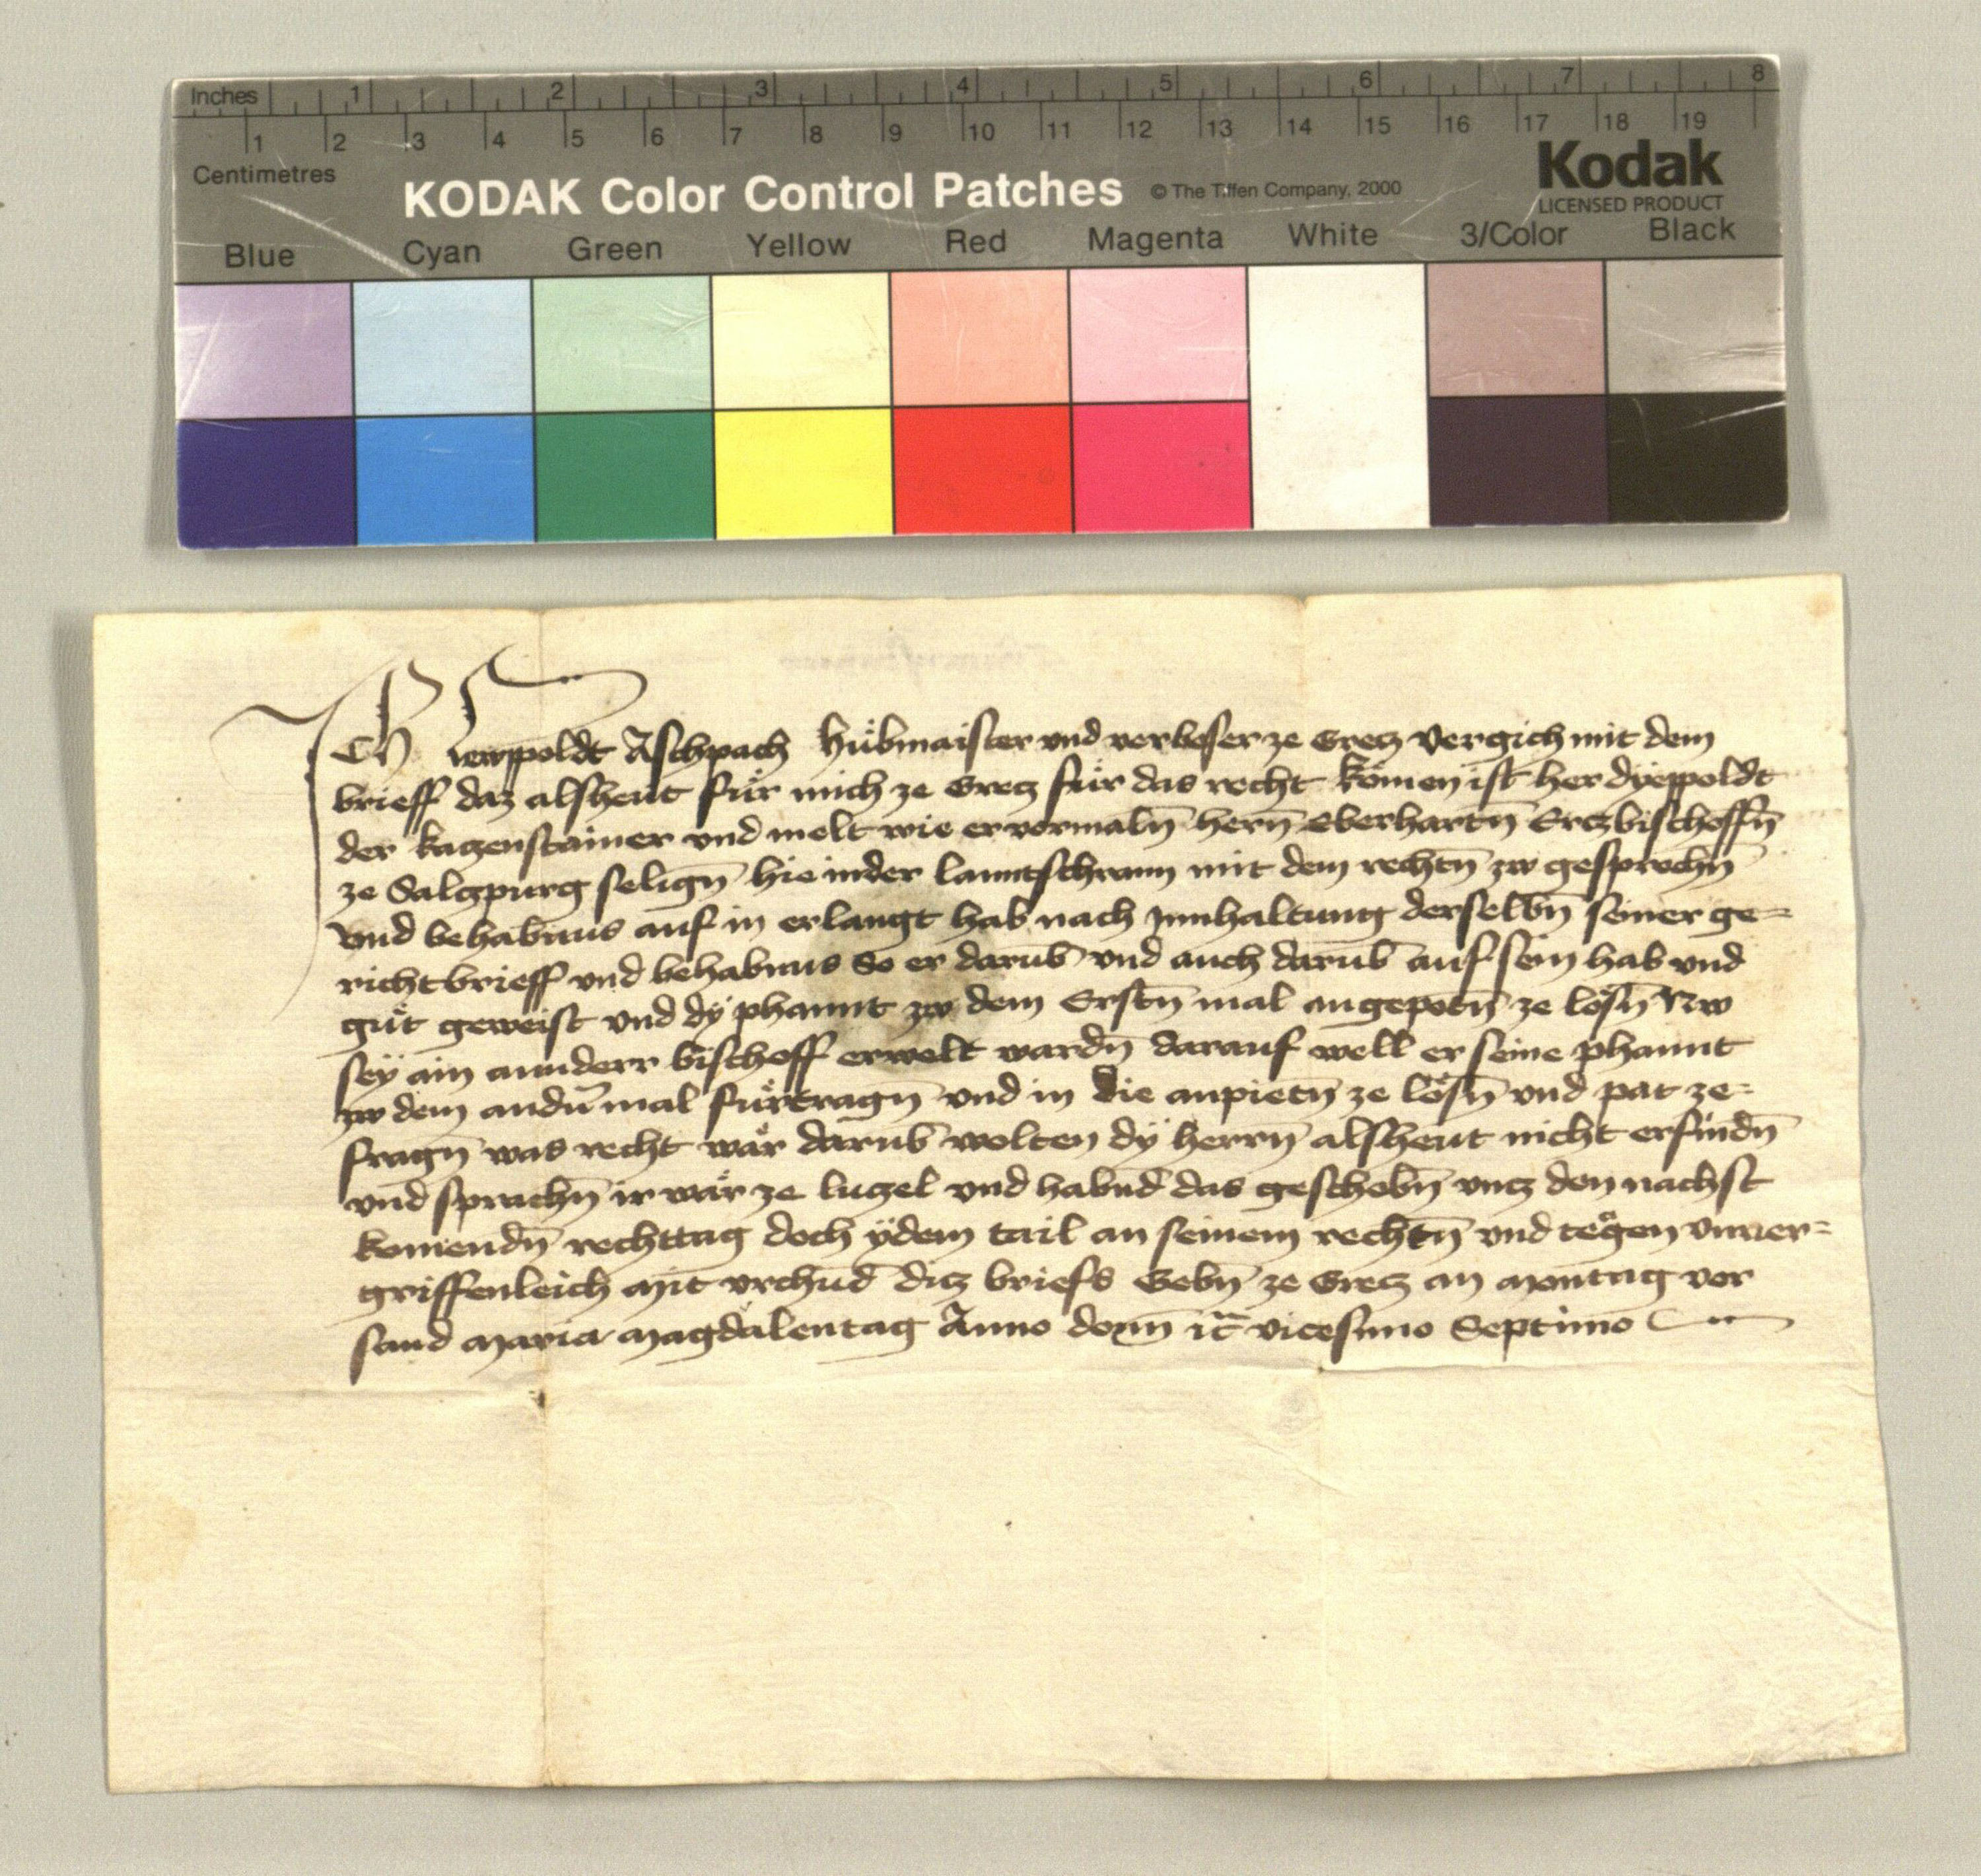 Inches 1 2 3 4 5 6 7 8
1 2 3 4 5 6 7 8 9 10 11 12 13 14 15 16 17 18 19
Centimetres
KODAK Color Control Patches © The Tiffen Company, 2000
Kodak
LICENSED PRODUCT
Blue Cyan Green Yellow Red Magenta White 3/Color Black
Ich lewpoldt Aschpach hůbmaister und verbeser ze Grecz Vergich mit dem
brieff daz alshewt für mich ze Grecz für das recht kömen ist her dyeppoldt
der kaczenstainer und melt wie er vormaln̄ hern̄ Eberhartn̄ Erczbischoffn̄
ze Salczpurg selign̄ hie inder lanntschrann mit dem rechtn̄ zw gesprochn̄
und behabnus auf in erlangt hab nach Innhaltung derselbn̄ seiner ge=
richtbrieff und behabnus So er darub̄ und auch darub̄ auf sein hab und
gůt geweist und dÿ phannt zw dem Erstn̄ mal angepotn̄ ze lösn̄ Nw
seÿ ain annderr bischoff erwelt wardn̄ darauf well er seine phannt
zw dem andn̄ mal fürtragn̄ und in die anpietn̄ ze lösn̄ und pat ze=
fragn̄ was recht wär darub̄ wolten dÿ herrn̄ alsheut nicht erfindn̄
und sprachn̄ ir wär ze luczel und habnd das geschobn̄ uncz den nachst
komendn̄ rechttag doch ÿdem tail an seinem rechtn̄ und tegen unuer=
griffenleich Mit urchund dicz briefs Gebn̄ ze Grecz an Montag vor
sand Maria Magdalentag Anno domī vicesimo Septimo